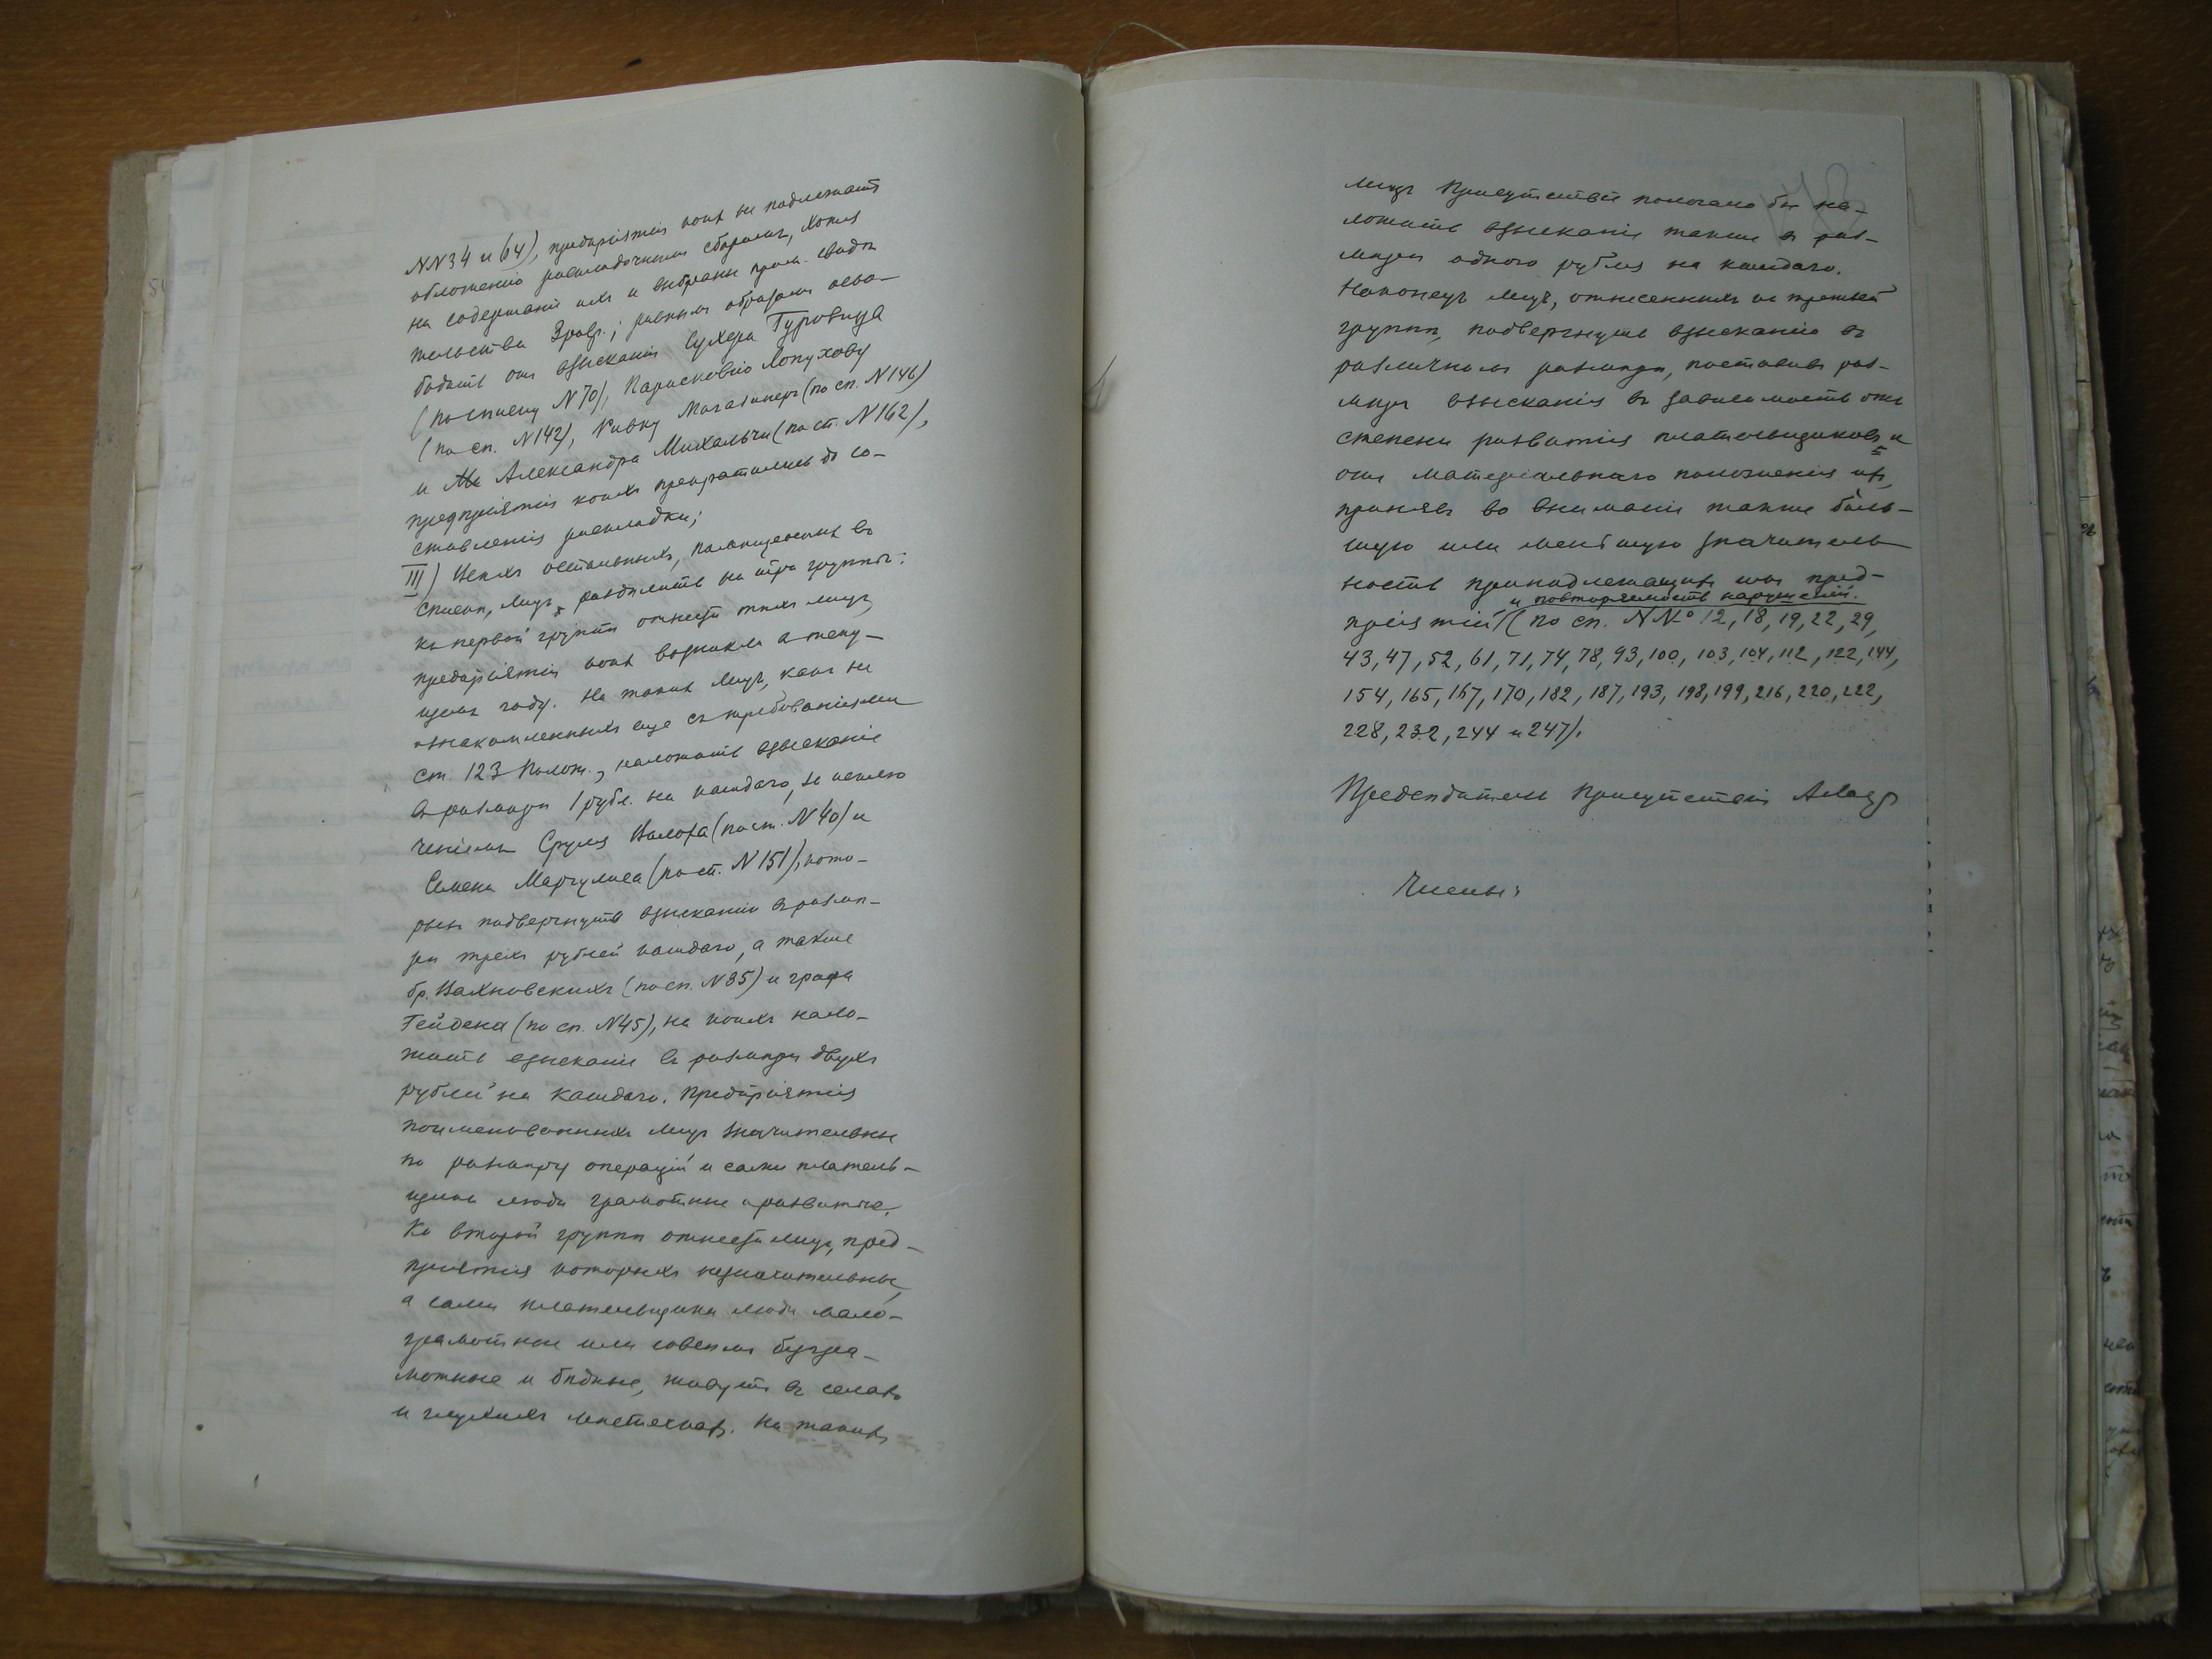 NN 34 и 64), предпріятія коихъ не подлежатъ
обложенію раскладочнымъ сборомъ, хотя
на содержаніе ихъ и выбраны пром. свидѣ-
тельства 3 разр.; равнымъ образомъ осво-
бодить отъ взысканія Сухера Гуровица
(по списку N 70), Парасковію Лопухову
(по сп. N 142), Ривку Магазинеръ (по сп. N 146)
и Александра Михальчи (по сп. N 162),
предпріятія коихъ прекратились до со-
ставленія раскладки;
III) Всѣхъ остальныхъ, помѣщенныхъ въ
спискѣ, лицъ раздѣлить на три группы:
къ первой группѣ отнести тѣхъ лицъ,
предпріятія коихъ возникли въ теку-
щемъ году. На такихъ лицъ, какъ не
ознакомленныхъ еще съ требованіями
ст. 123 Полож., наложить взысканіе
въ размѣрѣ 1 рубл. на каждаго, за исклю
ченіемъ Сруля (по сп. N 40) и
Семена Маргулиса (по сп. N 151), кото-
рыхъ подвергнуть взысканію въ размѣ-
рѣ трехъ рублей каждаго, а также
бр. Вахновскихъ (по сп. N 35) и графа
Гейдена (по сп. N 45), на коихъ нало-
жить взысканіе въ размѣрѣ двухъ
рублей на каждаго. Предпріятія
поименованныхъ лицъ значительны
по размѣру операцій и сами платель-
щики люди грамотные и развитые.
Ко второй группѣ отнести лицъ, пред-
пріятія которыхъ незначительны,
а сами плательщики люди мало-
грамотные или совсѣмъ безгра-
мотные и бѣдные, живутъ въ селахъ
и глухихъ мѣстечкахъ. На такихъ
лицъ Присутствіе полагало бы на-
ложить взысканіе также въ раз-
мѣрѣ одного рубля на каждаго.
Наконецъ лицъ, отнесенныхъ къ третьей
группѣ, подвергнуть взысканію въ
различномъ размѣрѣ, поставивъ раз-
мѣръ взысканія въ зависимость отъ
степени развитія плательщиковъ и
отъ матеріальнаго положенія ихъ,
принявъ во вниманіе также боль-
шую или меньшую значитель
ность принадлежащихъ имъ пред-
и повторяемость нарушеній.
пріятій (по сп. NNo 12, 18, 19, 22, 29,
43, 47, 52, 61, 71, 74, 78, 93, 100, 103, 104, 112, 122, 144,
154, 165, 167, 170, 182, 187, 193, 198, 199, 216, 220, 222,
228, 232, 244 и 247).
Предсѣдатель Присутствія
Члены: